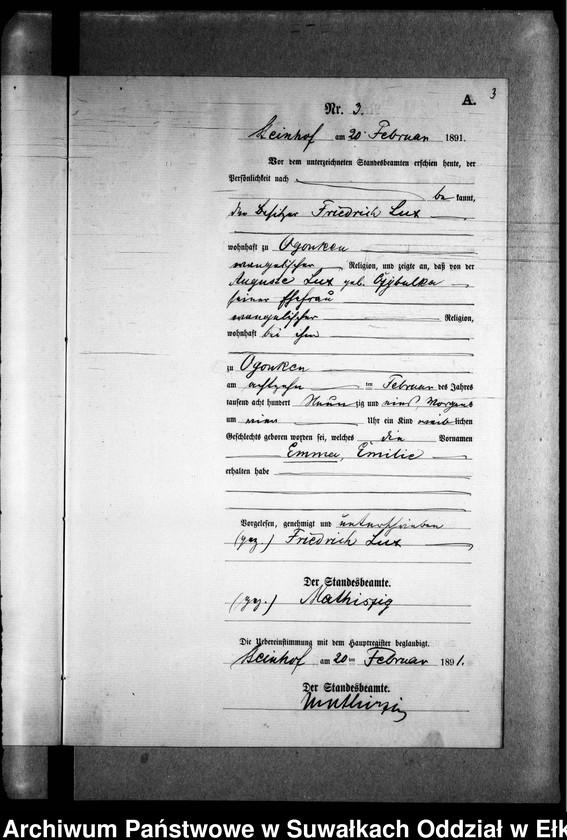 3
A.
Nr. 3.
Steinhof am 20 Februar 1891.
Vor dem unterzeichneten Standesbeamten erschien heute, der
Persönlichkeit nach
be kannt,
der Besitzer Friedrich Lux
wohnhaft zu Ogonken
evangelischer Religion, und zeigte an, daß von der
Auguste Lux geb.
seiner Ehefrau
evangelischer Religion,
wohnhaft bei ihm
zu Ogonken
am achtzehn ten Februar des Jahres
tausend acht hundert Neun zig und eins, Morgens
um vier Uhr ein Kind weib lichen
Geschlechts geboren worden sei, welches die Vornamen
Emma, Emilie
erhalten habe
Vorgelesen, genehmigt und unterschrieben
(gez.) Friedrich Lux
Der Standesbeamte.
(gez.) Mathiszig
Die Uebereinstimmung mit dem Hauptregister beglaubigt.
Steinhof am 20 ten Februar 1891.
Der Standesbeamte.
Mathiszig
Archiwum Państwowe w Suwałkach Oddział w Ełk